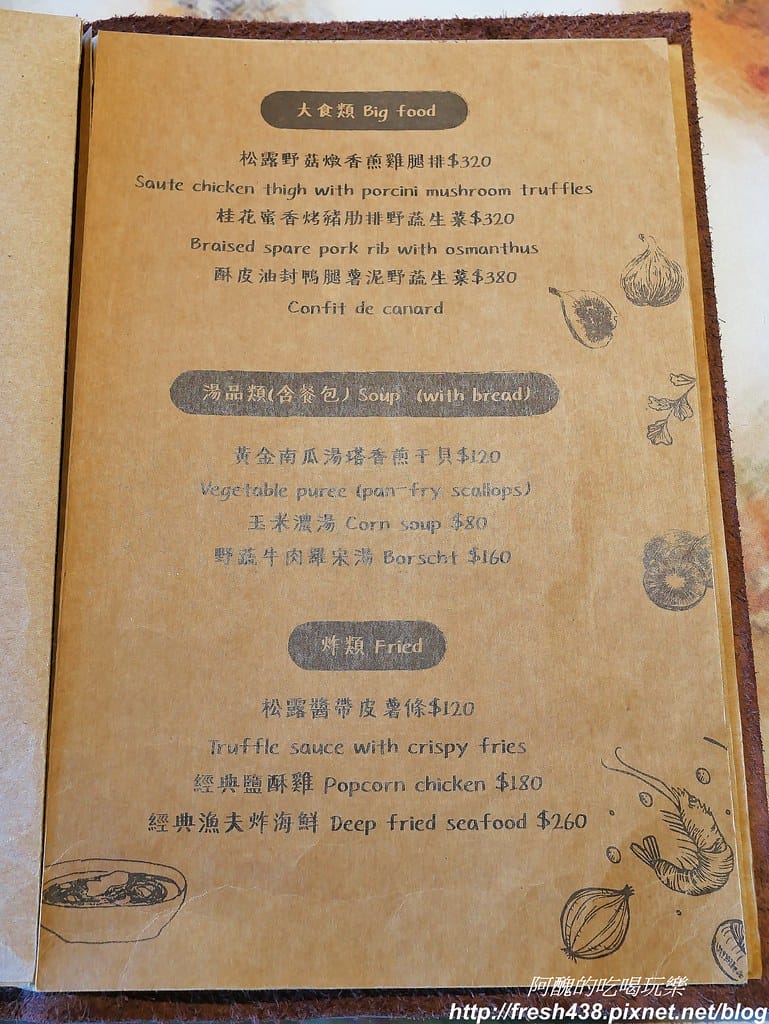 大食類 Big food
松露野菇燉香煎雞腿排$320
Saute chicken thigh with porcini mushroom truffles
桂花蜜香烤豬肋排野蔬生菜$320
Braised spare pork rib with osmanthus
酥皮油封鴨腿薯泥野蔬生菜$380
Confit de canard
湯品類(含餐包) Soup (with bread)
黃金南瓜湯塔香煎干貝$120
Vegetable puree (pan-fry scallops)
玉米濃湯 Corn soup $80
野蔬牛肉羅宋湯 Borscht $160
炸類 Fried
松露醬帶皮薯條$120
Truffle sauce with crispy fries
經典鹽酥雞 Popcorn chicken $180
經典漁夫炸海鮮 Deep fried seafood $260
阿醜的吃喝玩樂
http://fresh438.pixnet.net/blog